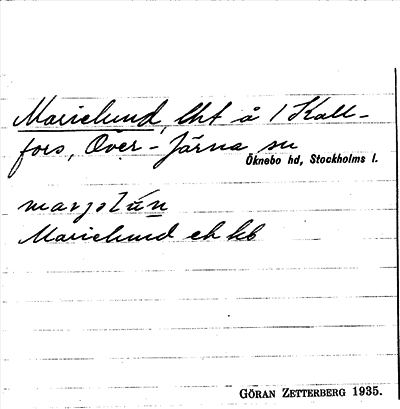 Marielund, lht å 1 Kall-
fors, Över-Järna sn
Öknebo hd, Stockholms l.
marjelún
Marielund ek kb
GÖRAN ZETTERBERG 1935.